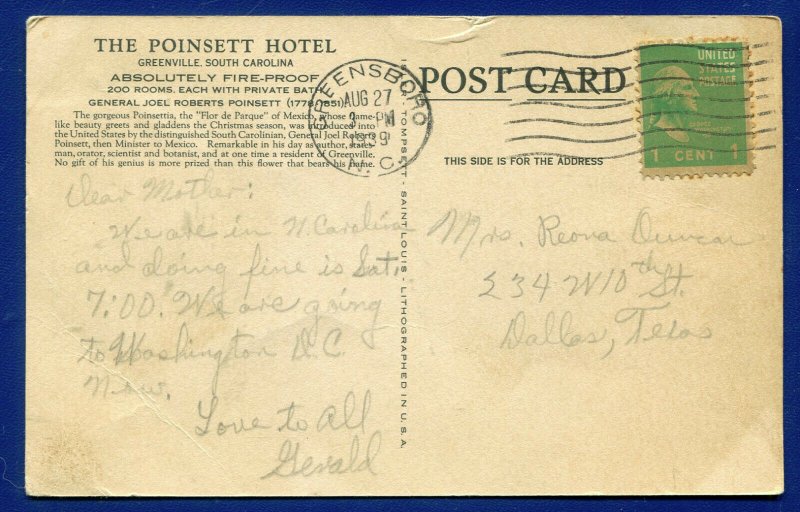 THE POINSETT HOTEL
GREENVILLE, SOUTH CAROLINA
ABSOLUTELY FIRE-PROOF
200 ROOMS. EACH WITH PRIVATE BATH
GENERAL JOEL ROBERTS POINSETT (1778-1851)
The gorgeous Poinsettia, the "Flor de Parque" of Mexico, whose flame-
like beauty greets and gladdens the Christmas season, was introduced into
the United States by the distinguished South Carolinian, General Joel Roberts
Poinsett, then Minister to Mexico. Remarkable in his day as author, states-
man, orator, scientist and botanist, and at one time a resident of Greenville.
No gift of his genius is more prized than this flower that bears his name.
Dear Mother:
We are in N. Carolina
and doing fine is Sat.
7:00. We are going
to Washington D.C.
Now.
Love to All
Gerald
GREENSBORO
AUG 27
PM
1939
N. C.
TOMPSETT - SAINT LOUIS - LITHOGRAPHED IN U. S. A.
POST CARD
THIS SIDE IS FOR THE ADDRESS
UNITED
STATES
POSTAGE
1 CENT 1
Mrs. Reona Duncan
234 W 10th St.
Dallas, Texas